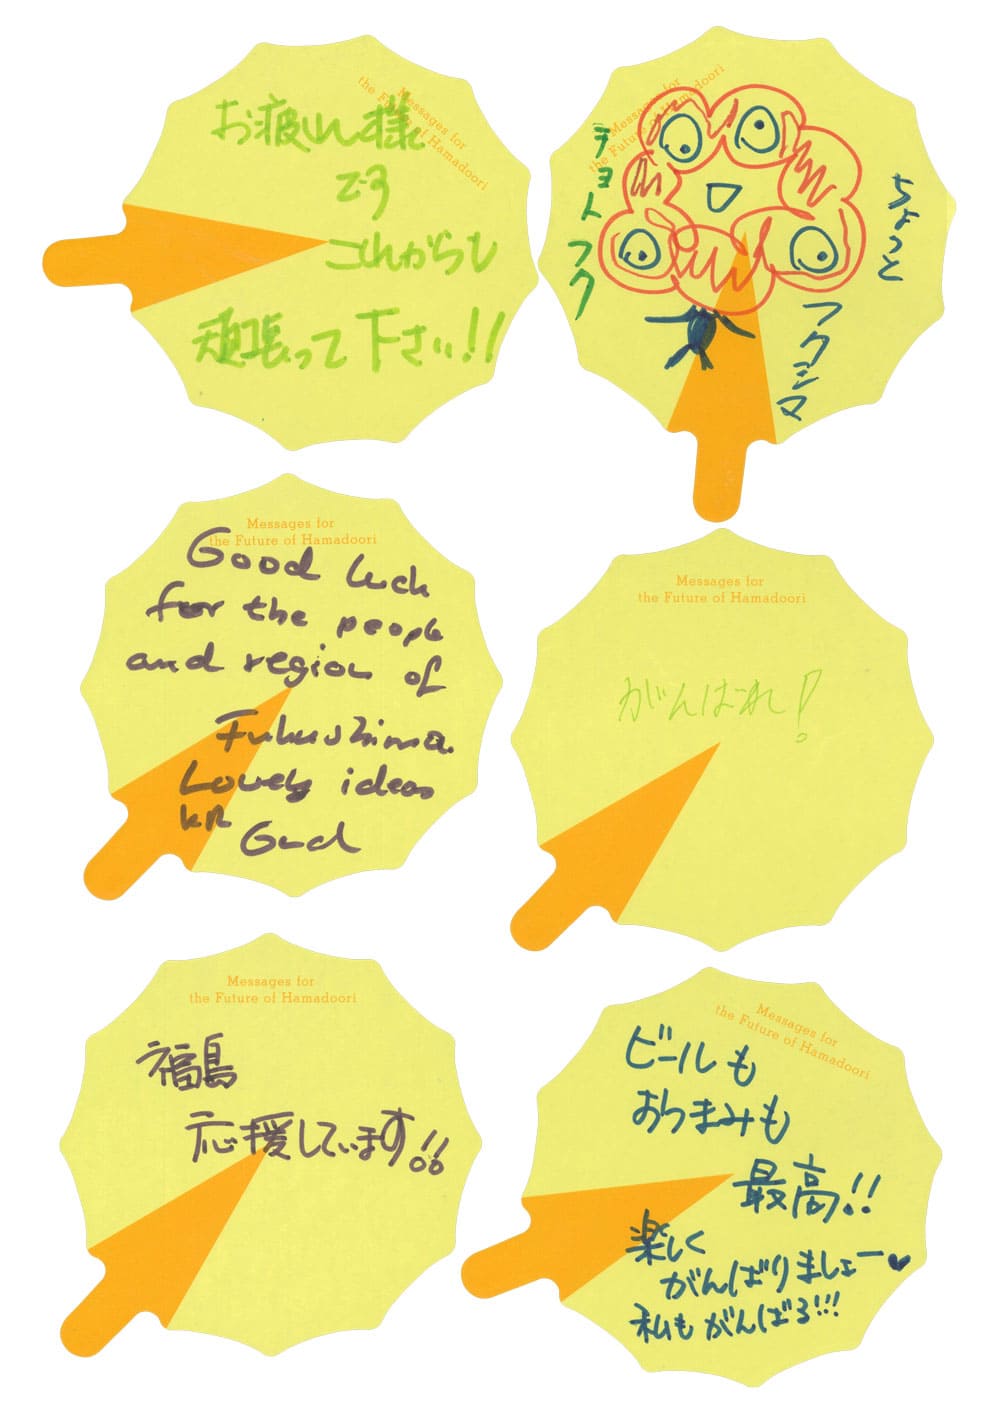 Messages for
the Future of Hamadoori
お疲れ様
です
これからも
頑張って下さい!!
Messages for
the Future of Hamadoori
ちょっと
フクシマ
チョットフク
Messages for
the Future of Hamadoori
Good luck
for the people
and region of
Fukushima.
Lovely ideas
Messages for
the Future of Hamadoori
がんばれ!
Messages for
the Future of Hamadoori
福島
応援しています!!
Messages for
the Future of Hamadoori
ビールも
おつまみも
最高!!
楽しく
がんばりましょー♥
私もがんばる!!!